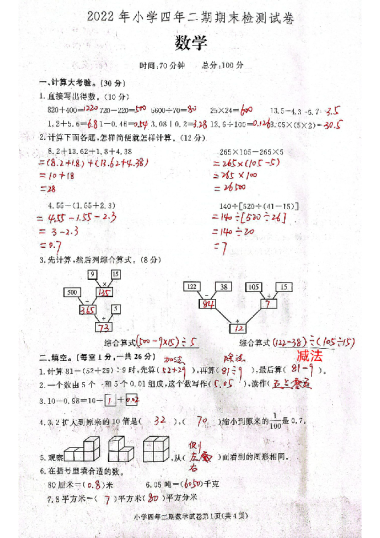 2022年小学四年二期期末检测试卷
数学
时间:70分钟 总分:100分
一、计算大考验。(30分)
1.直接写出得数。(10分)
820+400=1220 720-220=500 5600÷70=80 25×24=600 13.5-4.3-5.7=3.5
1.2+5.6=6.8 1-0.46=0.54 3.08+0.2=3.28
2.计算下面各题,怎样简便就怎样计算。(12分)
8.2+13.62+1.8+4.38 265×105-265×5
=(8.2+1.8)+(13.62+4.38) =265×(105-5)
=10+18 =265×100
=28 =26500
4.55-(1.55+2.3) 140÷[520÷(41-15)]
=4.55-1.55-2.3 =140÷[520÷26]
=3-2.3 =140÷20
=0.7 =7
3.先计算,然后列综合算式。(8分)
9 15
500 135 122 38 105 15
365 5 84 7
73 12
综合算式(500-9×15)÷5 综合算式(122-38)÷(105÷15)
二、填空。(每空1分,一共26分) 加法 除法 减法
1.计算81-(52+29)÷9时,先算(52+29),再算(81÷9),最后算(81-9)。
2.一个数由5个一和5个0.01组成,这个数写作(5.05),读作(五点零五)
3.10-0.98=10-1+0.02
4.3.2扩大到原来的10倍是(32),(70)缩小到原来的1/100是0.7。
5.观察 ,从( )面看到的图形相同。
6.在括号里填合适的数。
80厘米=(0.8)米 6.05吨=(6050)千克
7.8平方米=(7)平方米(80)平方分米
小学四年二期数学试卷第1页(共4页)